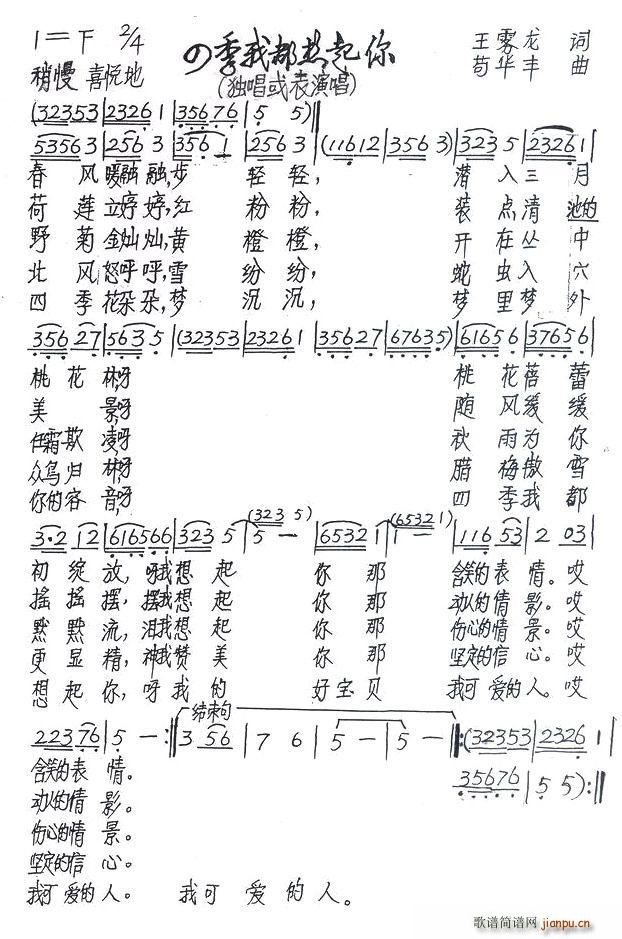 1=下 2/4
四季我都想起你
王雾龙 词
稍慢 喜悦地
(独唱或表演唱)
苟华丰 曲
(32353|23261|35676|5 5)‖
53563|2563|3561|2563|(11612|3563)|3235|23261|
春 风暖融融,步 轻轻, 潜入三月
荷 莲立婷婷,红 粉粉, 装点清池的
野 菊金灿灿,黄 橙橙, 开在丛中
北 风怒呼呼,雪 纷纷, 蛇虫入穴
四 季花朵朵,梦 沉沉, 梦里梦外
35627|5635|(32353|23261|35627|67635)|61656|37656|
桃花林,呀 桃花蓓蕾
美 景,呀 随风缓缓
任霜欺凌,呀 秋雨为你
众鸟归林,呀 腊梅傲雪
你的容音,呀 四季我都
(323 5) (6532 1)
3·2 12|6165 66|323 5|5 —|6532 1|1 —|116 53|2 03|
初绽放,呀我想起 你那 含笑的表情。哎
摇摇摆,摆我想起 你那 动人的倩影。哎
默默流,泪我想起 你那 伤心的情景。哎
更显精,神我赞美 你那 坚定的信心。哎
想起你,呀我的 好宝贝 我可爱的人。哎
结束句
223 76|5 —:‖3 56|7 6|5 —|5 —‖:(32353|23261|
含笑的表情。
35676|5 5):‖
动人的倩影。
伤心的情景。
坚定的信心。
我可爱的人。 我可爱的人。
歌谱简谱网
jianpu.cn